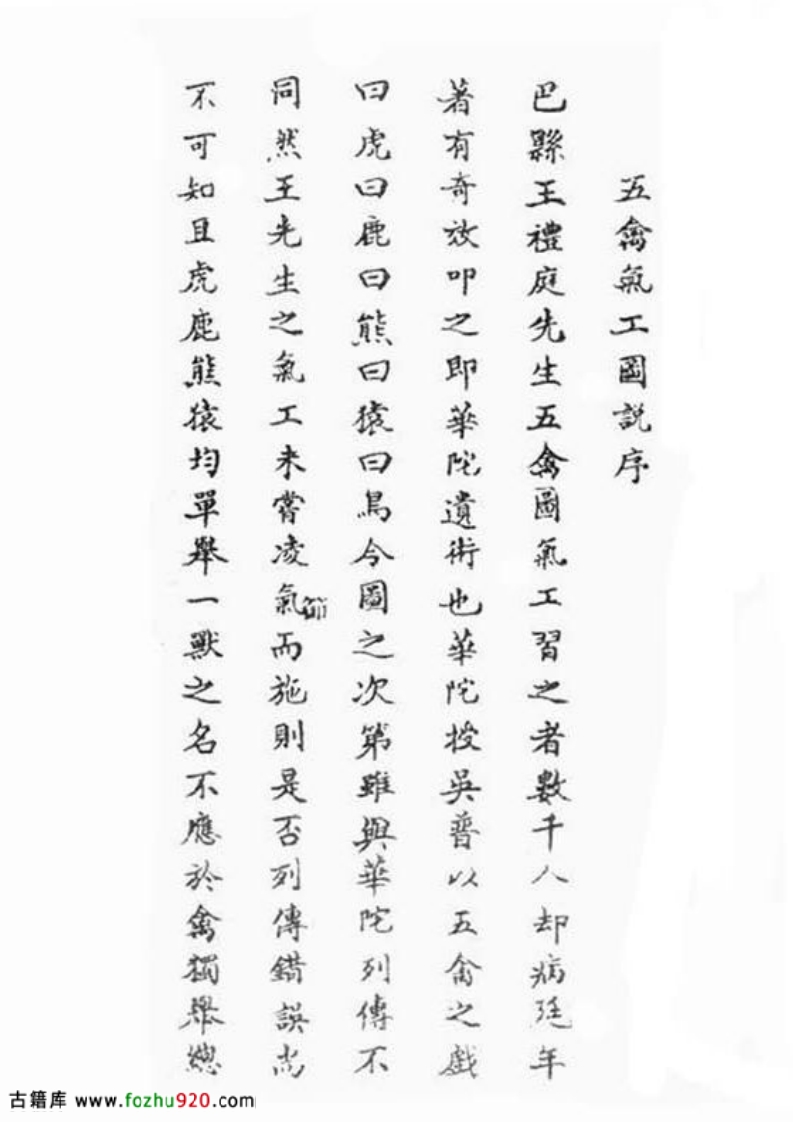 五禽氣工圖說序
巴縣王禮庭先生五禽圖氣工習之者數千人却病延年
著有奇效叩之即華陀遺術也華陀授吳普以五禽之戲
曰虎曰鹿曰熊曰猿曰鳥今圖之次第雖與華陀列傳不
同然王先生之氣工未嘗凌氣節而施則是否列傳錯誤尚
不可知且虎鹿熊猿均單舉一獸之名不應於禽獨舉總
古籍库 www.fozhu920.com